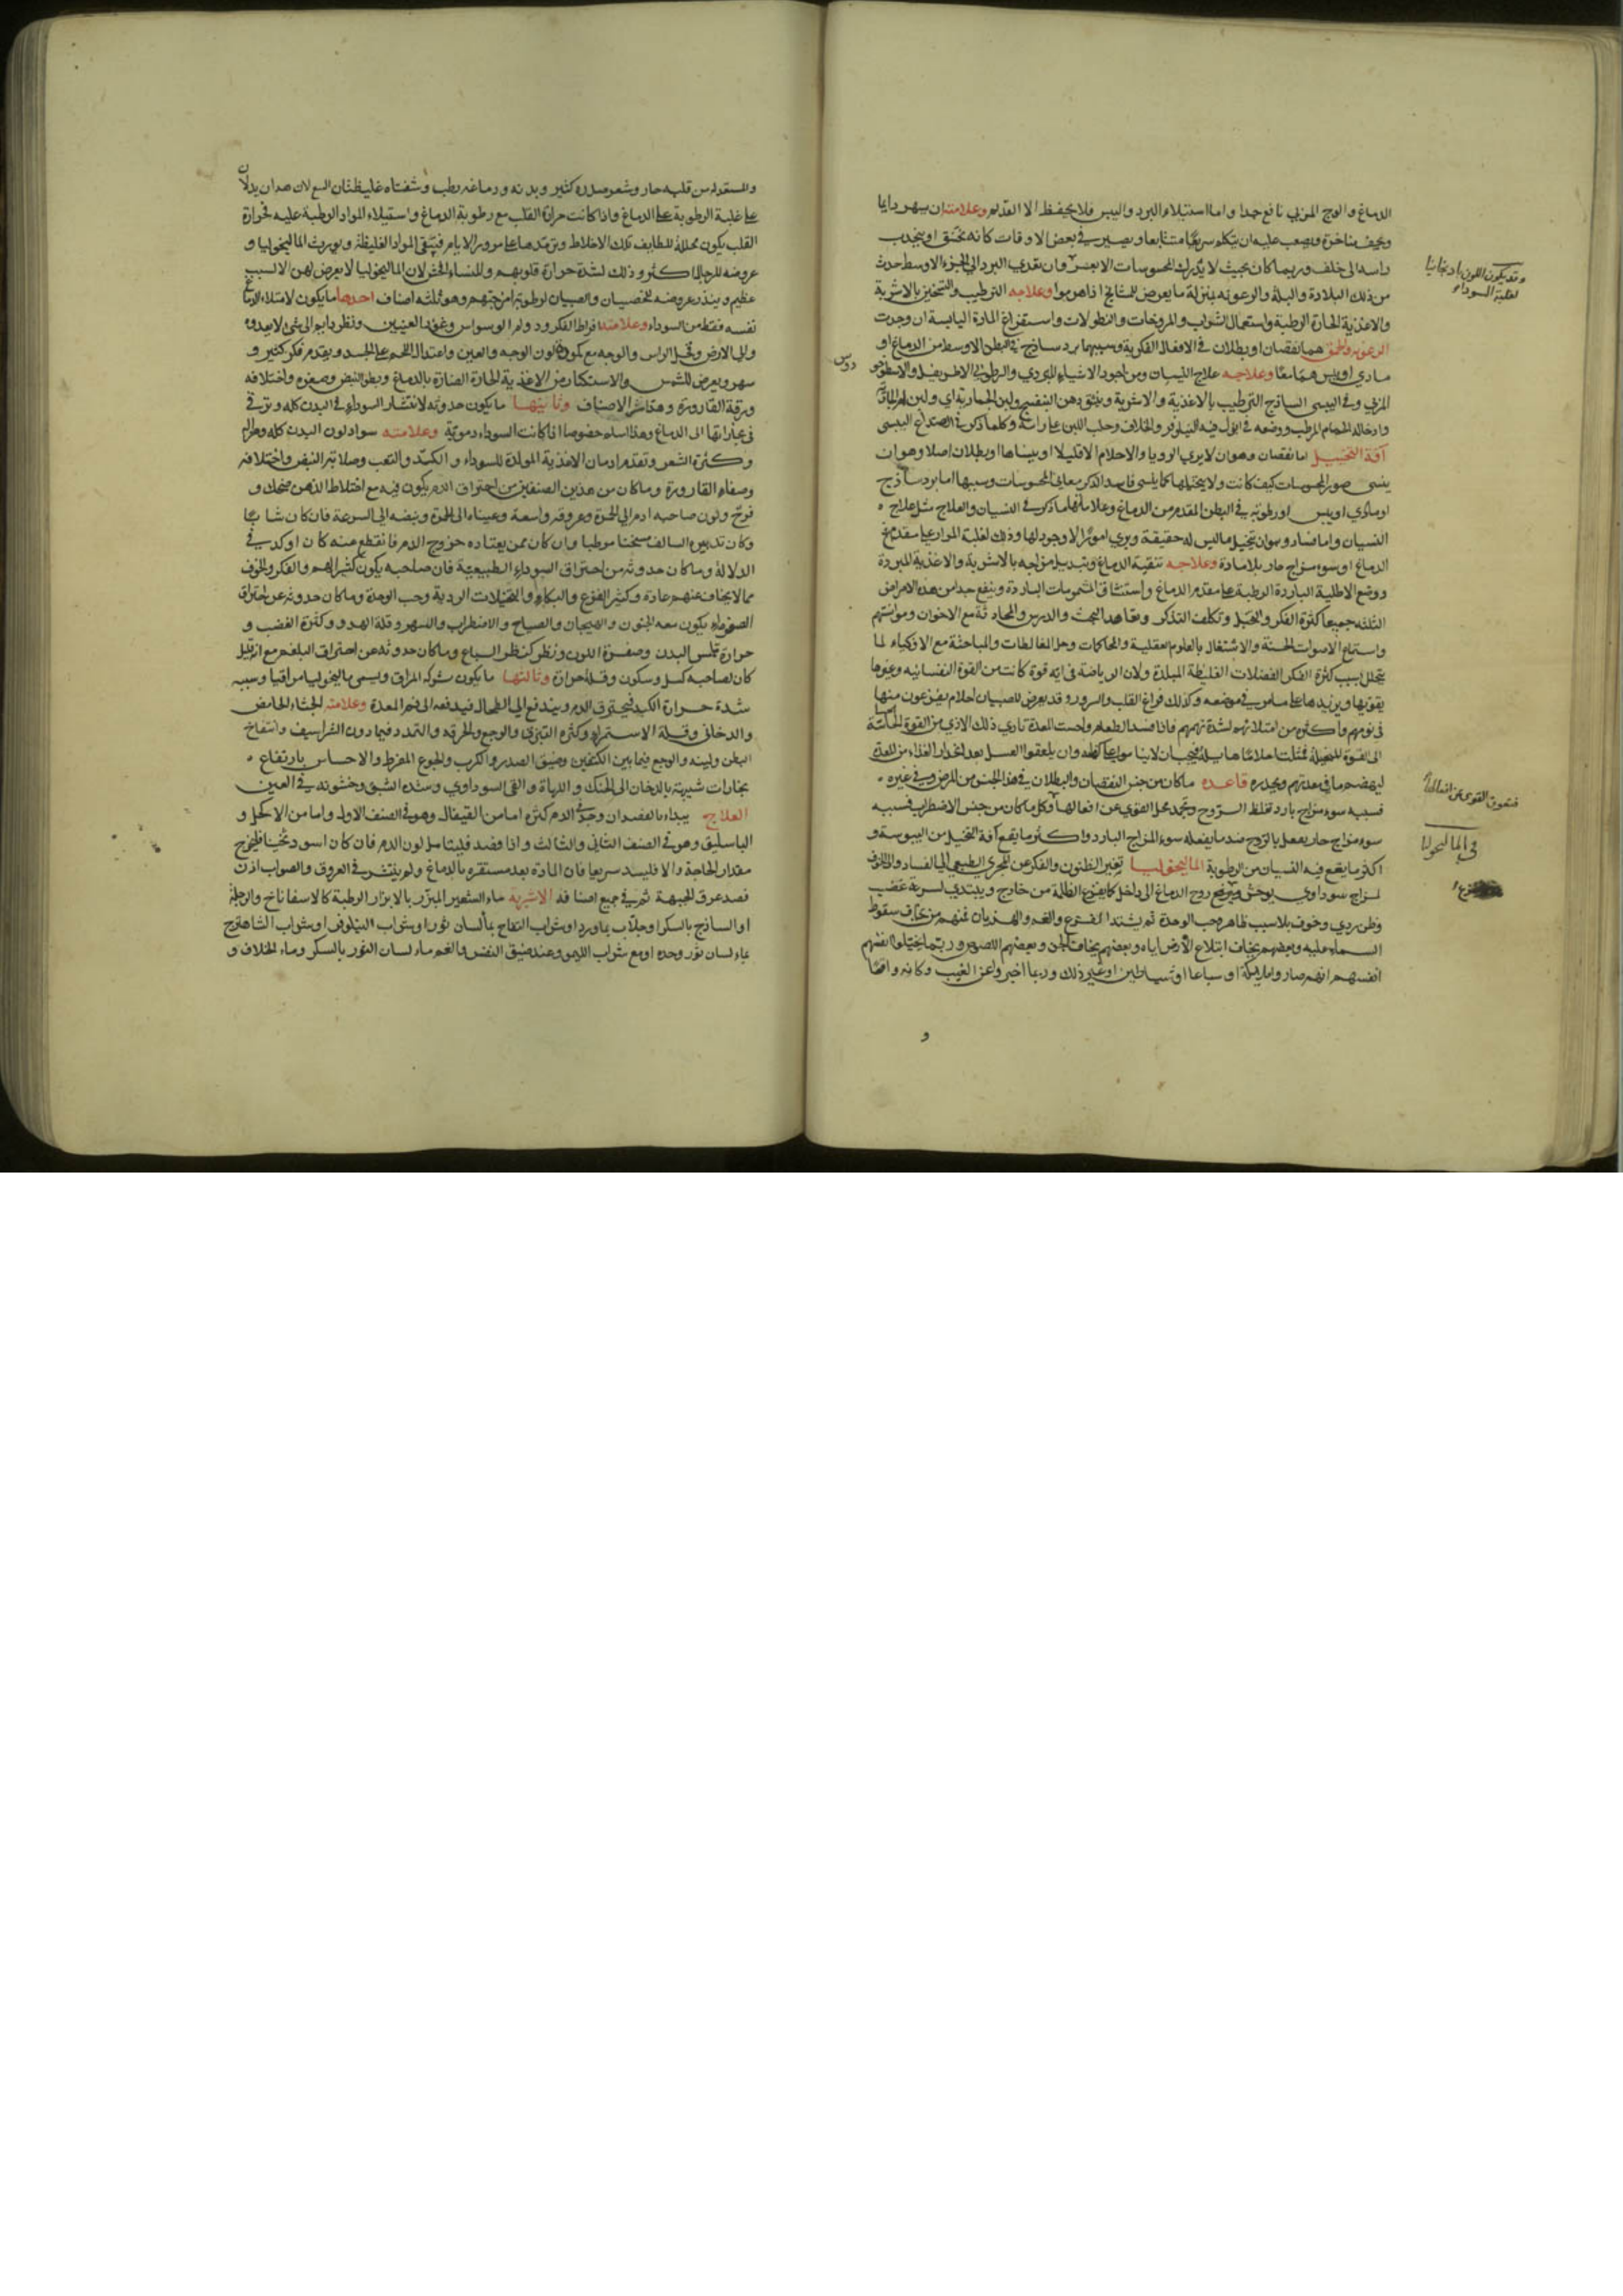 الدماغ والوج المربي نافع جدا واما استيلاء البرد واليبس فلا يحفظ الا القديم وعلامته ان يسهر دايما
ويجف مناخره ويصعب عليه ان يتكلم سريعا متتابعا ويصير في بعض الاوقات كانه مختنق او ينجذب
راسه الى خلف وربما كان بحيث لا يدرك المحسوسات الا بعسر وان تعدي البرد الى الجزء الاوسط حدث
من ذلك البلادة والبله والرعونه بمنزلة ما يعرض للمشايخ اذا هرموا وعلاجه الترطيب والتسخين بالاشربة
والاغذية الحارة الرطبة واستعمال والمروخات والنطولات واستفراغ المادة اليابسة ان وجدت
الرعونه والحمق هما نقصان او بطلان في الافعال الفكرية وسببهما برد ساذج في البطن الاوسط من الدماغ او
مادي او يبس هما معا وعلاجه علاج النسيان ومن اجود الاشياء للبردي والرطوبي الاطريفل والاسطوخو
دوس
المربي وفي اليبسي الساذج الترطيب بالاغذية والاشربة دهن البنفسج ولبن
وادخاله الحمام المرطب ووضعه في ابزن فيه النيلوفر والخلاف وحلب اللبن على راسه وكلما ذكر في الصداع اليبسي
آفة التخييل اما نقصان وهو ان لا يري الرويا والاحلام الا قليلا او ينساها او بطلان اصلا وهو ان
ينسي صور المحسوسات كيف كانت ولا يتخيلها كما ينسي فاسد الذكر معاني المحسوسات وسببها اما برد ساذج
او مادي او يبس او رطوبه في البطن المقدم من الدماغ وعلاماتها ما ذكر في النسيان والعلاج مثل علاج
النسيان واما فساد وهو ان يتخيل ما ليس له حقيقة ويري امورا لا وجود لها وذلك لغلبة المرار على مقدم
الدماغ او سوء مزاج حار بلا مادة وعلاجه تنقية الدماغ وتبديل مزاجه بالاشربة والاغذية المبردة
ووضع الاطلية الباردة الرطبة على مقدم الدماغ واستنشاق المشمومات الباردة وينفع جدا من هذه الامراض
الثلثه جميعا كثرة الفكر والتخيل وتكلف التذكر وتعاهد البحث والدرس والمحادثة مع الاخوان وموانستهم
واستماع الاصوات الحسنة والاشتغال بالعلوم العقلية والمحاكمات وحل المغالطات والمباحثة مع الاذكياء لما
يتحلل بسبب كثرة الفكر الفضلات الغليظة المبلدة ولان الرياضة في اية قوة كانت من القوة النفسانيه وغيرها
يقويها ويزيدها على ما مر في موضعه وكذلك فراغ القلب والسرور وقد يعرض للصبيان احلام يفزعون منها
في نومهم واكثره من امتلائهم لشدة نهمهم فاذا فسد الطعام واحست المعدة تادي ذلك الاذي من القوة الحاسّة
الى القوة المخيلة فمثلت احلاما هايلة فيجب ان لا يناموا على كظة وان يلعقوا العسل بعد انحدار الغذاء من المعدة
ليهضم ما في معدتهم ويحدره قاعده ما كان من جنس النقصان والبطلان في هذا الجنس من المرض وفي غيره
فسببه سوء مزاج بارد تغلظ الروح وتجمد محل القوي عن افعالها وكل ما كان من جنس الاضطراب فسببه
سوء مزاج حار يفعل بالروح ضد ما يفعله سوء المزاج البارد واكثر ما يقع آفة التخيل من اليبوسة و
اكثر ما يقع فيه النسيان من الرطوبة الماليخوليا تغير الظنون والفكر عن المجري الطبيعي الي الفساد والخوف
لمزاج سوداوي يوحش ويفزع روح الدماغ الى داخل كما يفزع الظلمة من خارج ويبتدي لسرعة غضب
وظن ردي وخوف بلا سبب ظاهر وحب الوحدة ثم يشتد الفزع والغم والهذيان فمنهم من يخاف سقوط
السماء عليه وبعضهم يخاف ابتلاع الارض اياه وبعضهم يخاف الجن وبعضهم اللصوص وربما يخيلوا انفسهم
انفسهم انهم صاروا ملايكة او سباعا او شياطين او غير ذلك وربما اخبروا عن الغيب وكانه واقعا
و
وقد يكون اللون باذنجانيا
لغلبة السوداء
فتعوق القوى عن افعالها
في الماليخوليا
والمستعد له من قلبه حار وشعر صدره كثير وبدنه ودماغه رطب وشفتاه غليظتان لان هذان يدلان
على غلبة الرطوبة على الدماغ واذا كانت حرارة القلب مع رطوبة الدماغ واستيلاء المواد الرطبة عليه فحرارة
القلب يكون محللة للطايف تلك الاخلاط وترمدها على مرور الايام فتبقى المواد الغليظة ويورث الماليخوليا و
عروضه للرجال اكثر وذلك لشدة حرارة قلوبهم وللنساء افحش لان الماليخوليا لا يعرض لهن الا لسبب
عظيم ويندر عروضه للخصيان والصبيان لرطوبة امزجتهم وهو ثلثه اصناف احدها ما يكون لامتلاء الدماغ
نفسه فقط من السوداء وعلامته افراط الفكر ودوام الوسواس وغور العينين ونظر دايم الى شئ لا يعدوه
والي الارض الراس والوجه مع كمودة لون الوجه والعين واعتدال اللحم على الجسد وتقدم فكر كثير و
سهر وتعرض للشمس والاستكثار من الاغذية الحارة الضارة بالدماغ وبطو النبض وصغره واختلافه
ورقة القارورة وهذا شر الاصناف وثانيها ما يكون حدوثه لانتشار السوداء في البدن كله وترقي
بخاراتها الى الدماغ وهذا اسلم خصوصا اذا كانت السوداء دموية وعلامته سواد لون البدن كله وهزاله
وكثرة الشعر وتقدم ادمان الاغذية المولدة للسوداء و الكد والتعب وصلابة النبض واختلافه
وصفاء القارورة وما كان من هذين الصنفين من احتراق الدم يكون فيه مع اختلاط الذهن ضحك و
فرح ولون صاحبه ادم الي الحمرة وعروقه واسعة وعيناه الى الحمرة ونبضه الي السرعة فان كان شابا
وكان تدبيره السالف مسخنا مرطبا وان كان ممن يعتاده خروج الدم فانقطع عنه كان اوكد في
الدلالة وما كان حدوثه من احتراق السوداء الطبيعية فان صاحبه يكون كثير الهم والفكر والخوف
مما لا يخاف عنهم عادة وكثير الفزع والبكاء والتخيلات الردية وحب الوحدة وما كان حدوثه عن احتراق
الصفراء يكون معه الجنون والهيجان والصياح والاضطراب والسهر وقلة الهدو وكثرة الغضب و
حرارة ملمس البدن وصفرة اللون ونظر كنظر السباع وما كان حدوثه عن احتراق البلغم
كان لصاحبه كسل وسكون وقلة حرارة وثالثها ما يكون بشركة المراق ويسمي ماليخوليا مراقيا وسببه
شدة حرارة الكبد فيحترق الدم ويندفع الي الطحال فيدفعه الى فم المعدة وعلامته الجشاء الحامض
والدخاني وقلة الاستمراء وكثرة التبزق والوجع والحرقه والتمدد فيما دون الشراسيف وانتفاخ
البطن ولينه والوجع فيما بين الكتفين وضيق الصدر والكرب والجوع المفرط والاحساس بارتفاع
بخارات شبيهة بالدخان الى الحنك و اللهاة والقي السوداوي وشدة الشبق وخشونه في العين
العلاج يبداء بالفصد ان وجد في الدم كثرة اما من القيفال وهو في الصنف الاول واما من الاكحل و
الباسليق وهو في الصنف الثاني والثالث واذا فصد فليتامل لون الدم فان كان اسود ثخينا فليخرج
مقدار الحاجة والا فليسد سريعا فان المادة بعد مستقره بالدماغ ولم ينتشر في العروق والصواب اذن
فصد عرق الجبهة ثم في جميع اصنافه الاشربة ماء الشعير المبزر بالابزار الرطبة كالاسفاناخ والرجلة
او الساذج بالسكر او جلاب بماورد او شراب التفاح بماء لسان ثور او شراب النيلوفر او شراب الشاهترج
بماء لسان ثور وحده او مع شراب الليمو وعند ضيق النفس والغم ماء لسان الثور بالسكر وماء الخلاف و